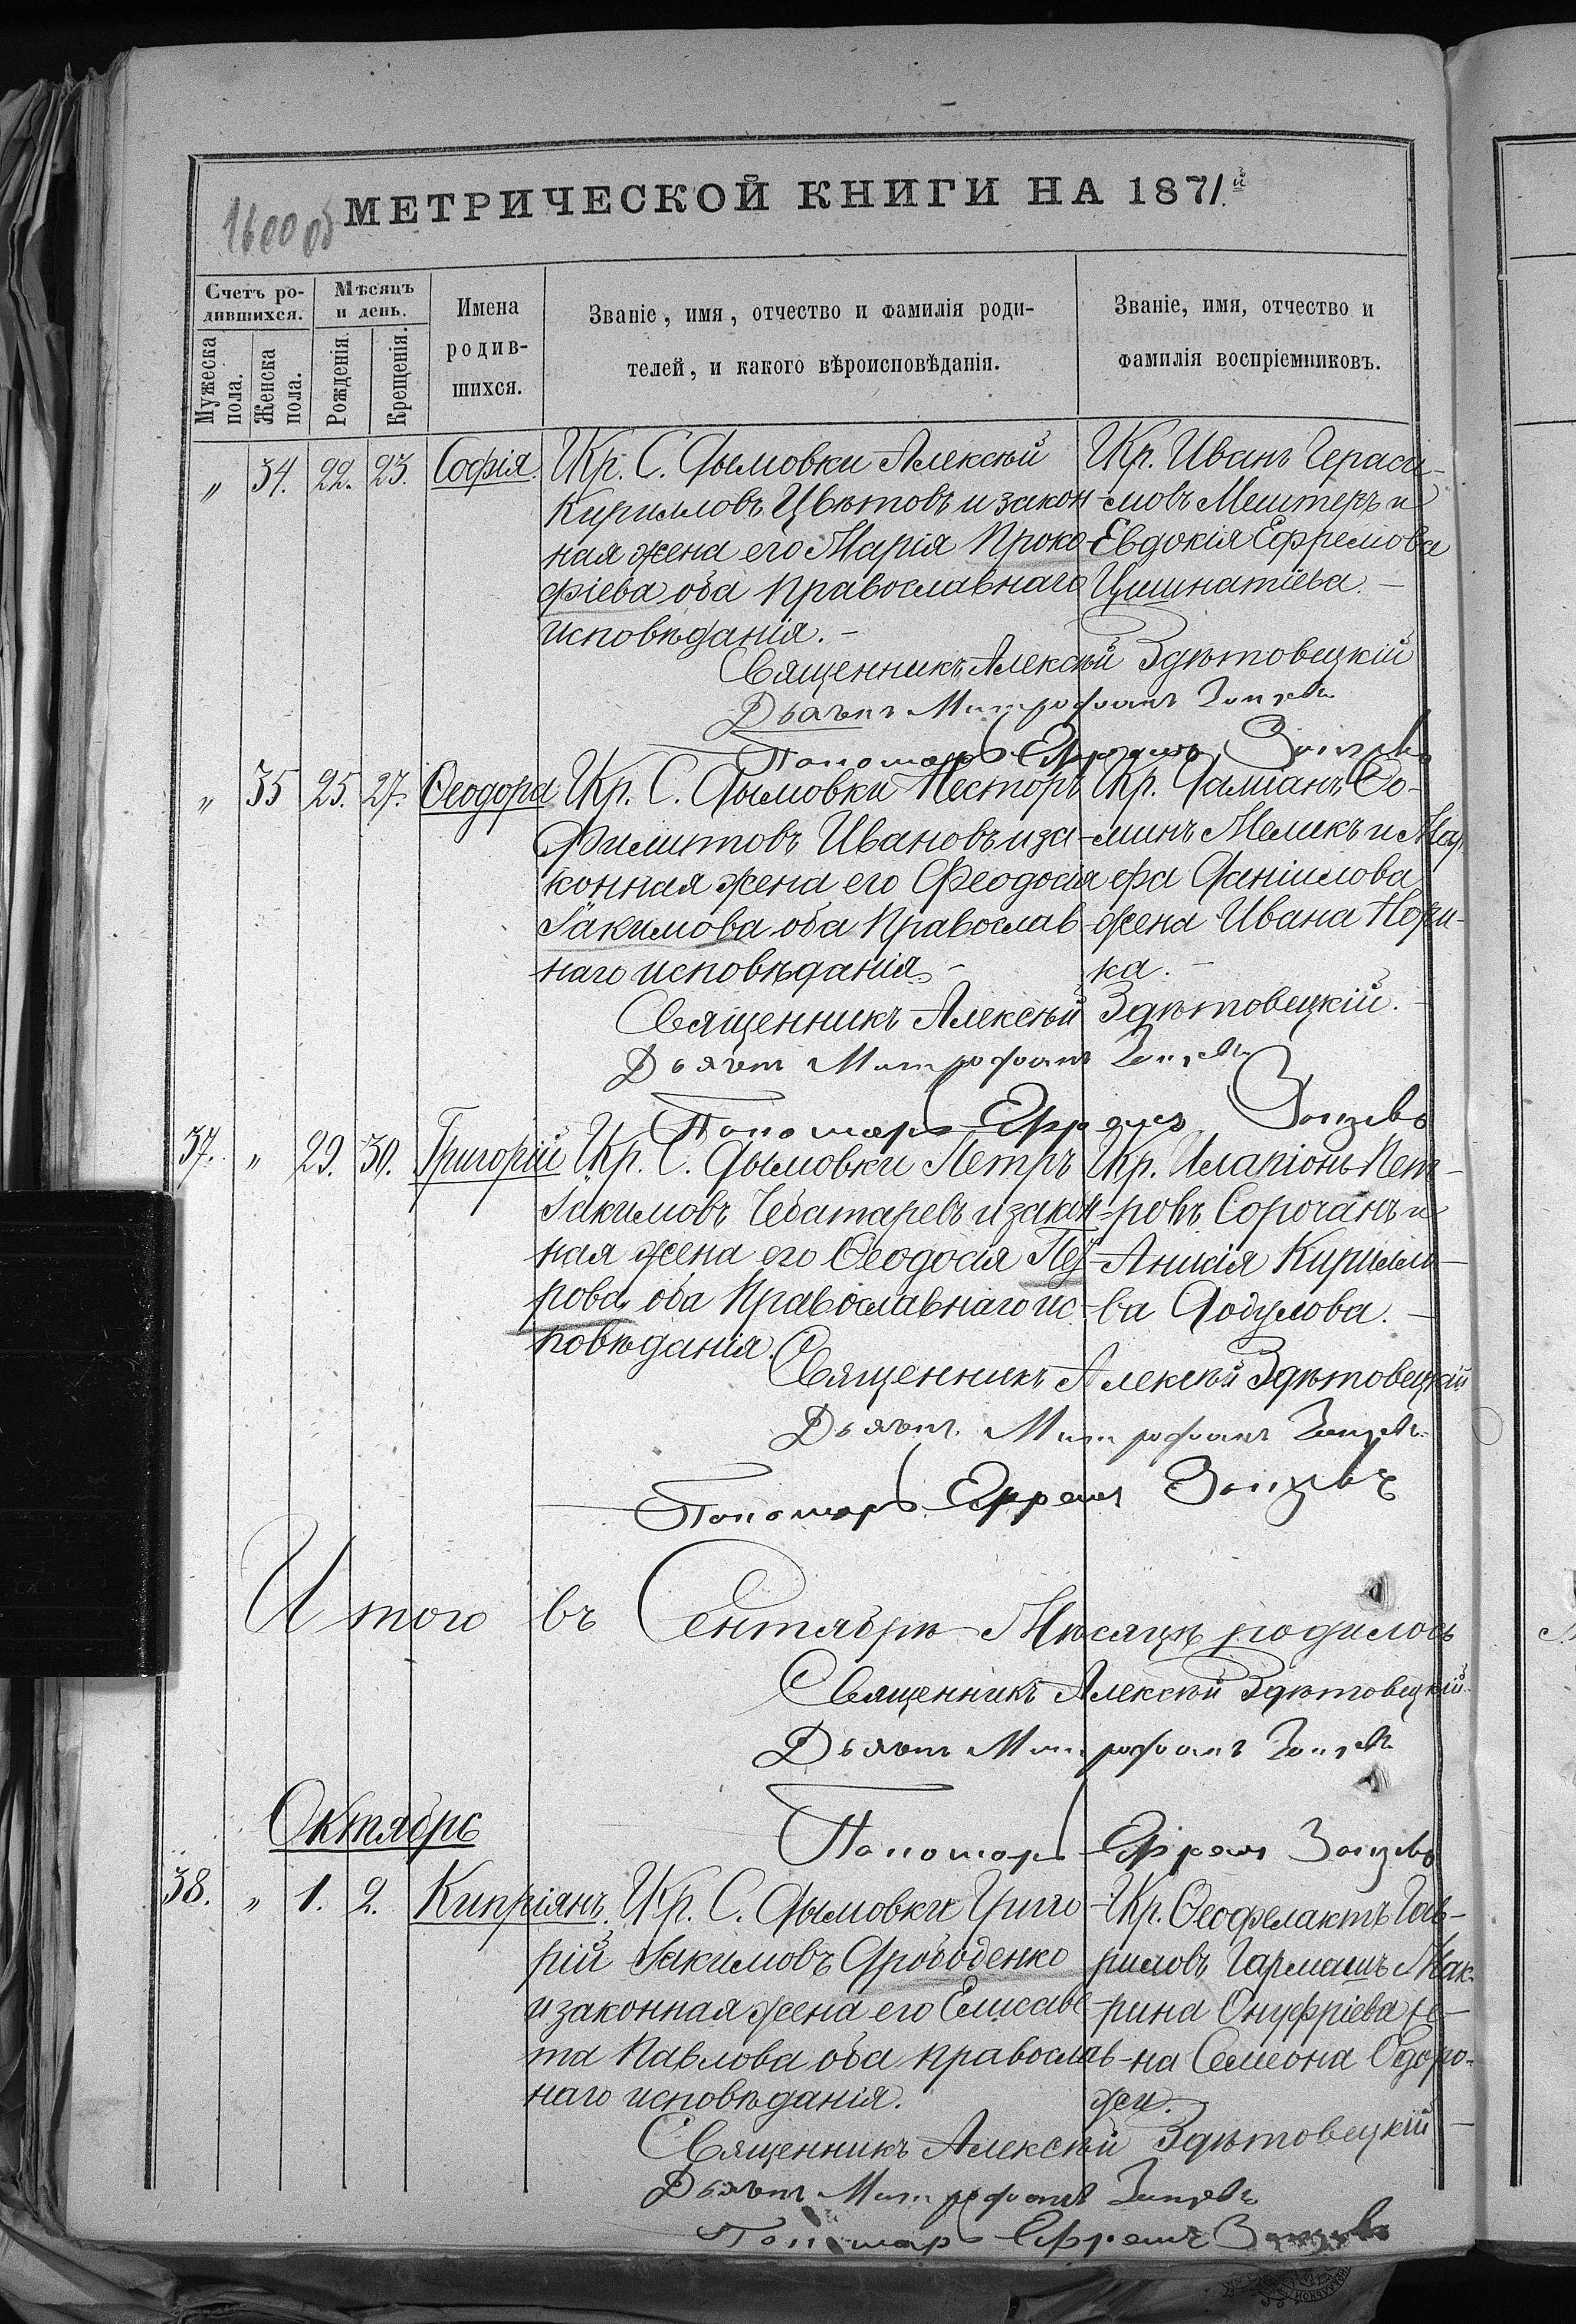 1600 об
МЕТРИЧЕСКОЙ КНИГИ НА 1871.й
Счетъ ро-
дившихся.
Мужеска
пола.
Женска
пола.
Мѣсяцъ
и день.
Рожденія.
Крещенія.
Имена
родив-
шихся.
Званіе, имя, отчество и фамилія роди-
телей, и какого вѣроисповѣданія.
Званіе, имя, отчество и
фамилія воспріемниковъ.
„ 34. 22. 23. Софія.
Цкр. С. Дымовки Алексѣй
Кирилловъ Цвѣтовъ и закон-
ная жена его Марія Проко-
фіева оба Православнаго
исповѣданія. –
Цкр. Иванъ Гераси-
мовъ Мештеръ и
Евдокія Ефремова
Священникъ Алексѣй Здѣтовецкій
Дьячекъ Митрофанъ
Пономарь Ефремъ
„ 35 25. 27. Ѳеодора
Цкр. С. Дымовки Несторъ
Филиповъ Ивановъ и за-
конная жена его Феодосія
Іакимова оба Православ-
наго исповѣданія –
Цкр. Даміанъ Ѳо-
минъ Меликъ и Мар
фа Даніилова
жена Ивана
ка. –
Священникъ Алексѣй Здѣтовецкій.
Дьячекъ Митрофанъ
Пономарь Ефремъ
37. „ 29. 30. Григорій
Цкр. С. Дымовки Петръ
Іакимовъ Чебатаревъ и закон-
ная жена его Ѳеодосія Пет-
рова, оба Православнаго ис-
повѣданія.
Цкр. Иларіонъ Пет-
ровъ Сорочанъ и
Анисія Кирилло-
ва Додулова. –
Священникъ Алексѣй Здѣтовецкій
Дьячекъ Митрофанъ
Пономарь Ефремъ
Итого въ Сентябрѣ Мѣсяцѣ родилось
Священникъ Алексѣй Здѣтовецкій.
Дьячекъ Митрофанъ
Пономарь Ефремъ
Октябрь
38. „ 1. 2. Кипріянъ.
Цкр. С. Дымовки Григо-
рій Іакимовъ Дрободенко
и законная жена его Елисаве-
та Павлова оба православ-
наго исповѣданія.
Цкр. Ѳеофелактъ Гав-
риловъ Гармашъ Мак-
рина Онуфріева же-
на Семеона
Священникъ Алексѣй Здѣтовецкій
Дьячекъ Митрофанъ
Пономарь Ефремъ